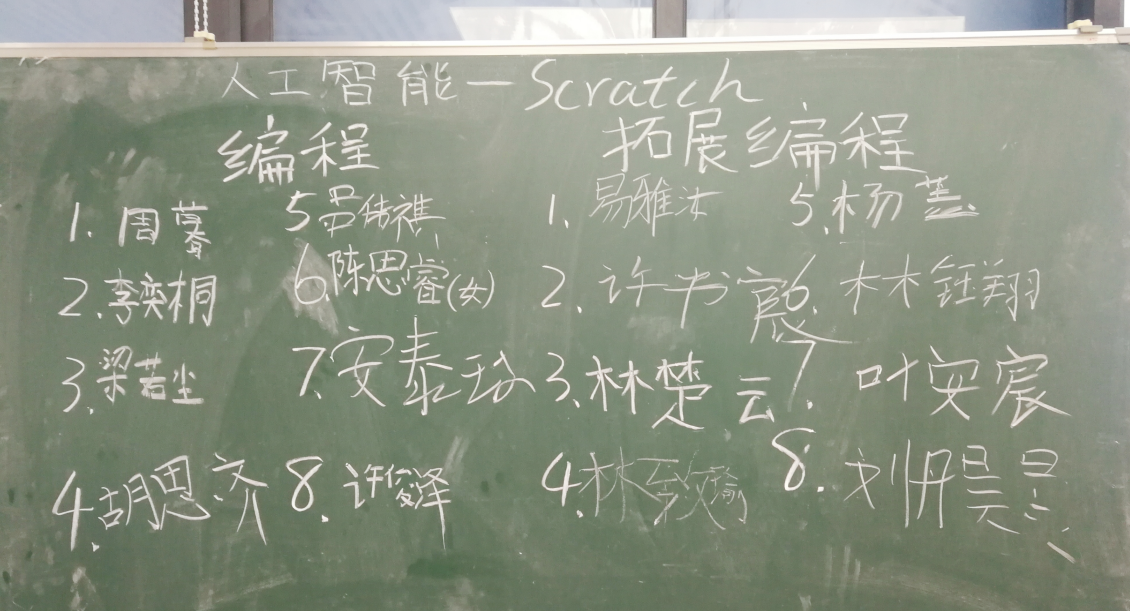 人工智能—Scratch
编程 拓展编程
1. 周蕚 5 吕伟祺 1. 易雅汝 5. 杨
2. 李奕桐 6. 陈思睿(女) 2. 许书宸 6. 林钰翔
3. 梁若尘 7. 安泰 3. 林楚云 7. 叶安宸
4. 胡思齐 8. 许俊泽 4. 林致瑜 8. 刘昊